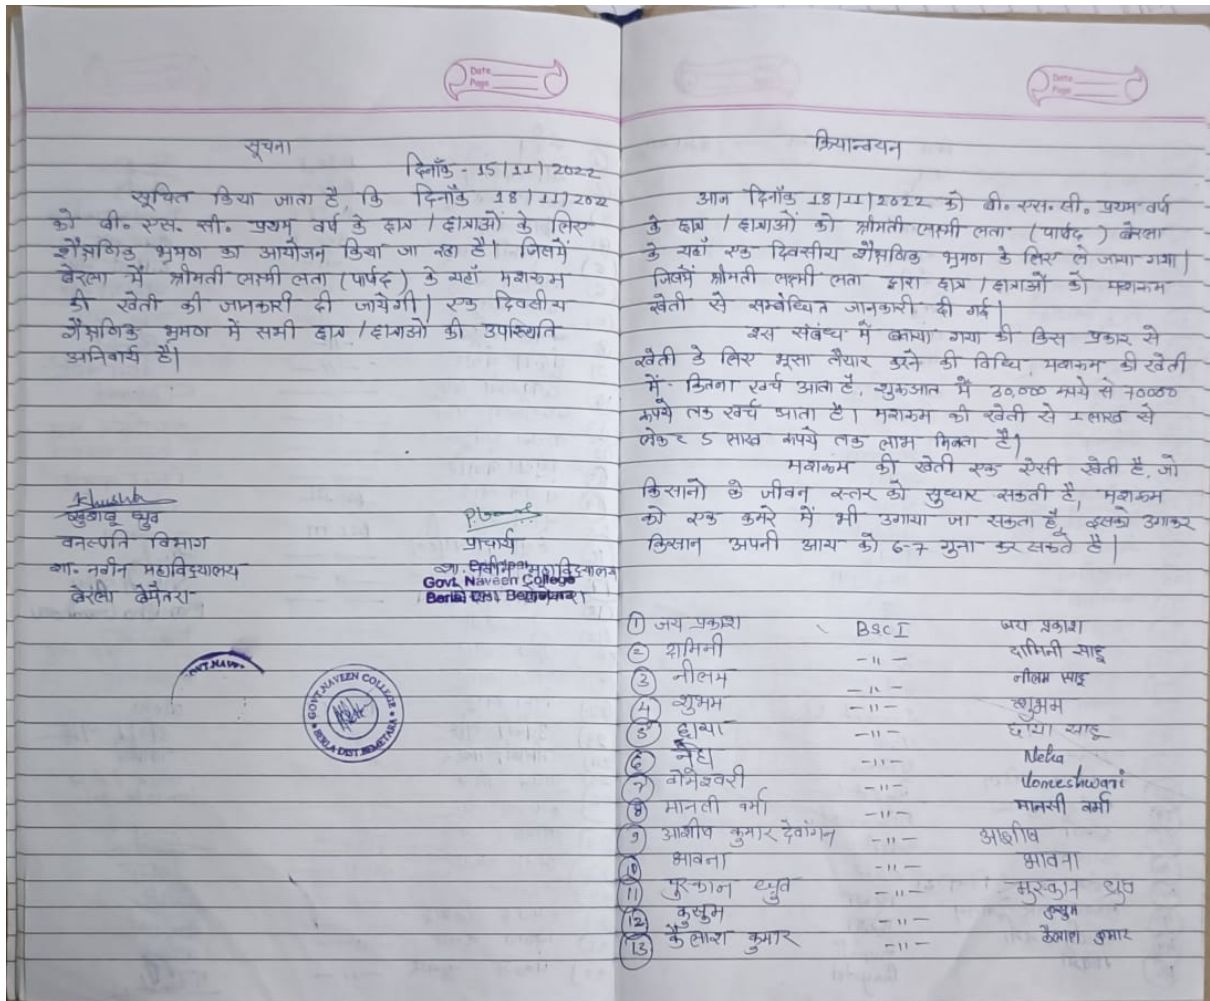 Date
Page
सूचना
दिनाँक - 15/11/2022
सूचित किया जाता है, कि दिनाँक 18/11/202
को बी. एस. सी. प्रथम वर्ष के छात्र / छात्राओं के लिए
शैक्षणिक भ्रमण का आयोजन किया जा रहा है। जिसमें
बेरला में श्रीमती लक्ष्मी लता (पार्षद) के यहाँ मशरूम
की खेती की जानकारी दी जायेगी। एक दिवसीय
शैक्षणिक भ्रमण में सभी छात्र / छात्राओं की उपस्थिति
अनिवार्य है।
खुशबू ध्रुव
वनस्पति विभाग
शा. नवीन महाविद्यालय
बेरला बेमेतरा
प्राचार्य
शा. नवीन महाविद्यालय
Principal
Govt. Naveen College
Berla Dist. Bemetara
GOVT. NAVE
GOVT. NAVEEN COLLEGE
BERLA DIST. BEMETARA
Date
Page
क्रियान्वयन
आज दिनाँक 18/11/2022 को बी. एस. सी. प्रथम वर्ष
के छात्र / छात्राओं को श्रीमती लक्ष्मी लता (पार्षद) बेरला
के यहाँ एक दिवसीय शैक्षणिक भ्रमण के लिए ले जाया गया।
जिसमें श्रीमती लक्ष्मी लता द्वारा छात्र / छात्राओं को मशरूम
खेती से सम्बन्धित जानकारी दी गई।
इस संबंध में बताया गया की किस प्रकार से
खेती के लिए भूसा तैयार करने की विधि, मशरूम की खेती
में कितना खर्च आता है, शुरूआत में 30,000 रूपये से 70000
रूपये तक खर्च आता है। मशरूम की खेती से 1 लाख से
लेकर 5 लाख रूपये तक लाभ मिलता है।
मशरूम की खेती एक ऐसी खेती है, जो
किसानो के जीवन स्तर को सुधार सकती है, मशरूम
को एक कमरे में भी उगाया जा सकता है, इसको उगाकर
किसान अपनी आय को 6-7 गुना कर सकते है।
1 जय प्रकाश BSc I जय प्रकाश
2 दामिनी -"- दामिनी साहू
3 नीलम -"- नीलम साहू
4 शुभम -"- शुभम
5 छाया -"- छाया साहू
6 नेहा -"- Neha
7 वोमेश्वरी -"- Vomeshwari
8 मानसी वर्मा -"- मानसी वर्मा
9 आशीष कुमार देवांगन -"- आशीष
10 भावना -"- भावना
11 मुस्कान ध्रुव -"- मुस्कान ध्रुव
12 कुसुम -"- कुसुम
13 कैलाश कुमार -"- कैलाश कुमार